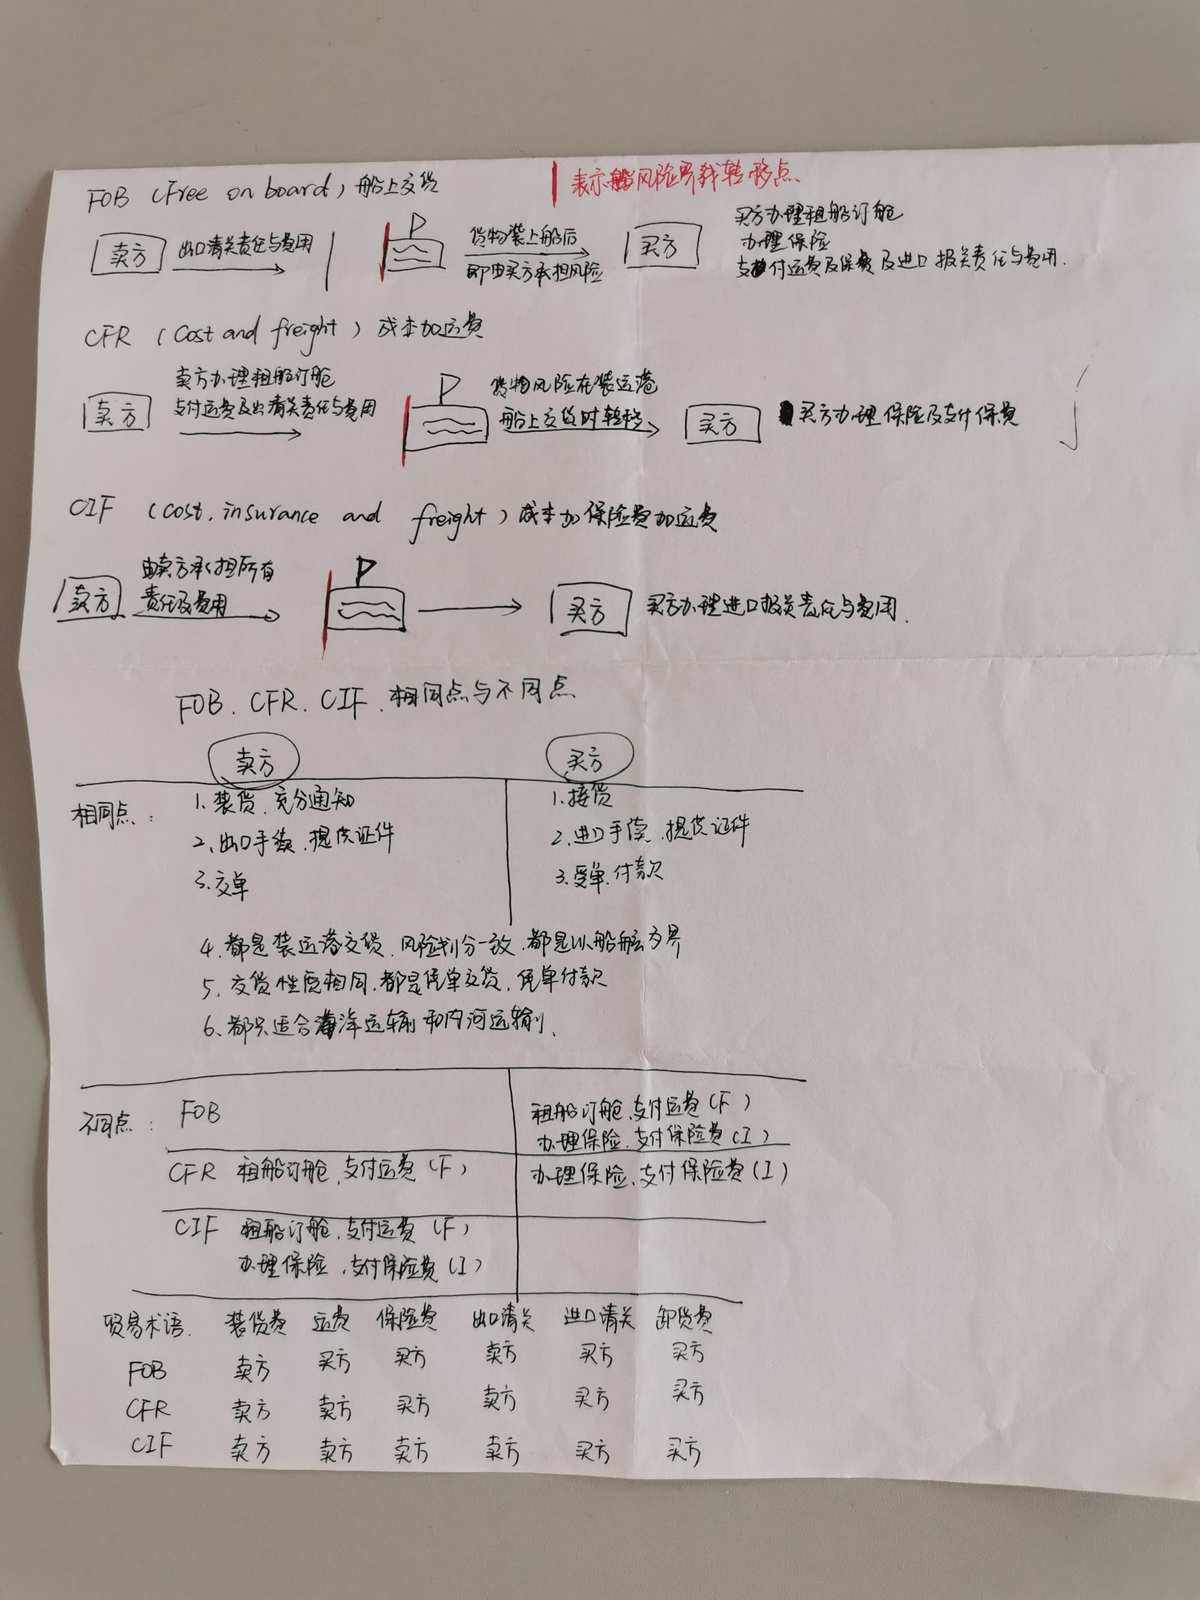 FOB (Free on board) 船上交货
表示船风险界线转移点
卖方 出口清关责任与费用
货物装上船后
即由买方承担风险
买方
买方办理租船订舱
办理保险
支付运费及保费及进口报关责任与费用.
CFR (Cost and freight) 成本加运费
卖方
卖方办理租船订舱
支付运费及出清关责任与费用
货物风险在装运港
船上交货时转移
买方
买方办理保险及支付保费
CIF (cost, insurance and freight) 成本加保险费加运费
卖方
由卖方承担所有
责任及费用
买方 买方办理进口报关责任与费用.
FOB、CFR、CIF、相同点与不同点
卖方 买方
相同点: 1.装货、充分通知 1.接货
2、出口手续、提供证件 2、进口手续、提供证件
3.交单 3.受单、付款
4、都是装运港交货,风险划分一致,都是以船舷为界
5、交货性质相同,都是凭单交货,凭单付款
6、都只适合海洋运输和内河运输、
不同点: FOB 租船订舱、支付运费(F)
办理保险、支付保险费(I)
CFR 租船订舱、支付运费(F) 办理保险、支付保险费(I)
CIF 租船订舱、支付运费(F)
办理保险、支付保险费(I)
贸易术语、 装货费 运费 保险费 出口清关 进口清关 卸货费
FOB 卖方 买方 买方 卖方 买方 买方
CFR 卖方 卖方 买方 卖方 买方 买方
CIF 卖方 卖方 卖方 卖方 买方 买方